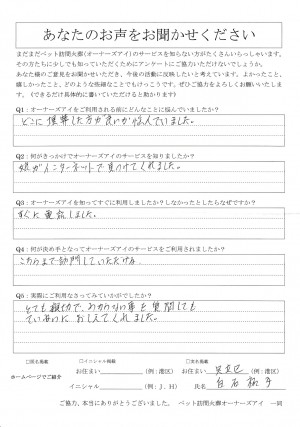 あなたのお声をお聞かせください
まだまだペット訪問火葬(オーナーズアイ)のサービスを知らない方がたくさんいらっしゃいます。
その方たちに少しでも知っていただくためにアンケートにご協力いただけないでしょうか。
あなた様のご意見をお聞かせいただき、今後の活動に反映したいと考えています。よかったこと、
嬉しかったこと、どのような些細なことでもけっこうです。ぜひご協力をよろしくお願いいたしま
す。（できるだけ具体的に書いていただけると助かります）
Q1：オーナーズアイをご利用される前にどんなことに悩んでいましたか？
どこに埋葬した方が良いか悩んでいました。
Q2：何がきっかけでオーナーズアイのサービスを知りましたか？
娘がインターネットで見つけてくれました。
Q3：オーナーズアイを知ってすぐに利用しましたか？しなかったとしたらなぜですか？
すぐに電話しました。
Q4：何が決め手となってオーナーズアイのサービスをご利用されましたか？
こちらまで訪問していただける。
Q5：実際にご利用なさってみていかがでしたか？
とても親切で、わからない事を質問しても
ていねいにおしえてくれました。
□匿名掲載 □イニシャル掲載 □氏名掲載
ホームページでご紹介 お住まい （例：港区） お住まい 足立区 （例：港区）
イニシャル （例：J．H） 氏名 白石
ご協力、本当にありがとうございました。 ペット訪問火葬オーナーズアイ 一同